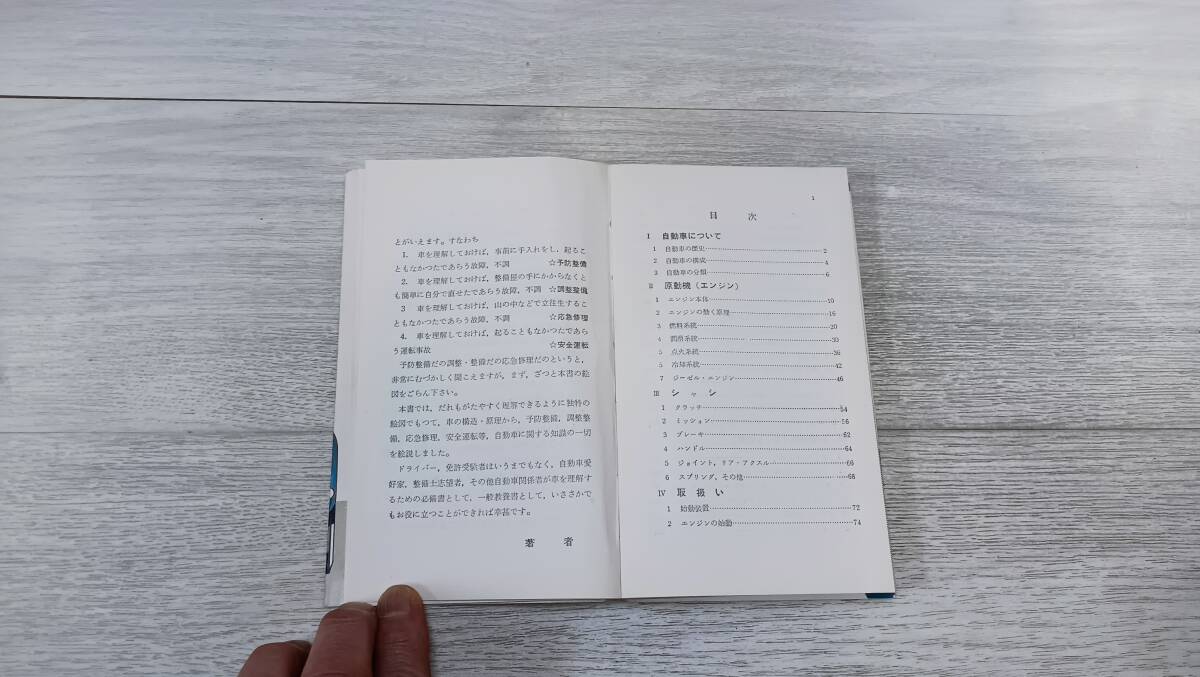 とがいえます。すなわち
1. 車を理解しておけば，事前に手入れをし，起るこ
ともなかつたであらう故障，不調 ☆予防整備
2. 車を理解しておけば，整備屋の手にかからなくと
も簡単に自分で直せたであらう故障，不調 ☆調整整備
3 車を理解しておけば，山の中などで立往生するこ
ともなかつたであらう故障，不調 ☆応急修理
4. 車を理解しておけば，起ることもなかつたであら
う運転事故 ☆安全運転
予防整備だの調整・整備だの応急修理だのというと，
非常にむづかしく聞こえますが，まず，ざつと本書の絵
図をごらん下さい。
本書では，だれもがたやすく理容できるように独特の
絵図でもつて，車の構造・原理から，予防整備，調整整
備，応急修理，安全運転等，自動車に関する知識の一切
を絵説しました。
ドライバー，免許受験者はいうまでもなく，自動車愛
好家，整備士志望者，その他自動車関係者が車を理解す
るための必備書として，一般教養書として，いささかで
もお役に立つことができれば幸甚です。
著 者
1
目 次
I 自動車について
1 自動車の歴史……2
2 自動車の構成……4
3 自動車の分類……6
II 原動機（エンジン）
1 エンジン本体……10
2 エンジンの動く原理……16
3 燃料系統……20
4 潤滑系統……30
5 点火系統……36
6 冷却系統……42
7 ジーゼル・エンジン……46
III シャシ
1 クラッチ……54
2 ミッション……56
3 ブレーキ……62
4 ハンドル……64
5 ジョイント，リア・アクスル……66
6 スプリング，その他……68
IV 取扱い
1 始動装置……72
2 エンジンの始動……74